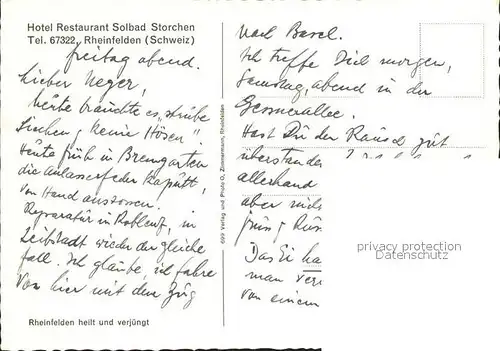 Hotel Restaurant Solbad Storchen
Tel. 67322, Rheinfelden (Schweiz)
Freitag abend.
Lieber Neger,
heute brauchte es "strübe
Siechen, keine Hösen".
Heute früh in Bremgarten
die Anlasserfeder kaputt,
von Hand
Reparatur in Koblenz, in
Leibstadt wieder der gleiche
Fall. Ich glaube, ich fahre
von hier mit dem Zug
Rheinfelden heilt und verjüngt
699 Verlag und Photo O. Zimmermann, Rheinfelden
nach Basel.
Ich treffe Dich morgen,
Samstag, abend in der
Gessnerallee.
Hast Du den Rausch gut
überstanden
allerhand
aber
Das Ei ha
man ver
von einem
privacy protection
Datenschutz